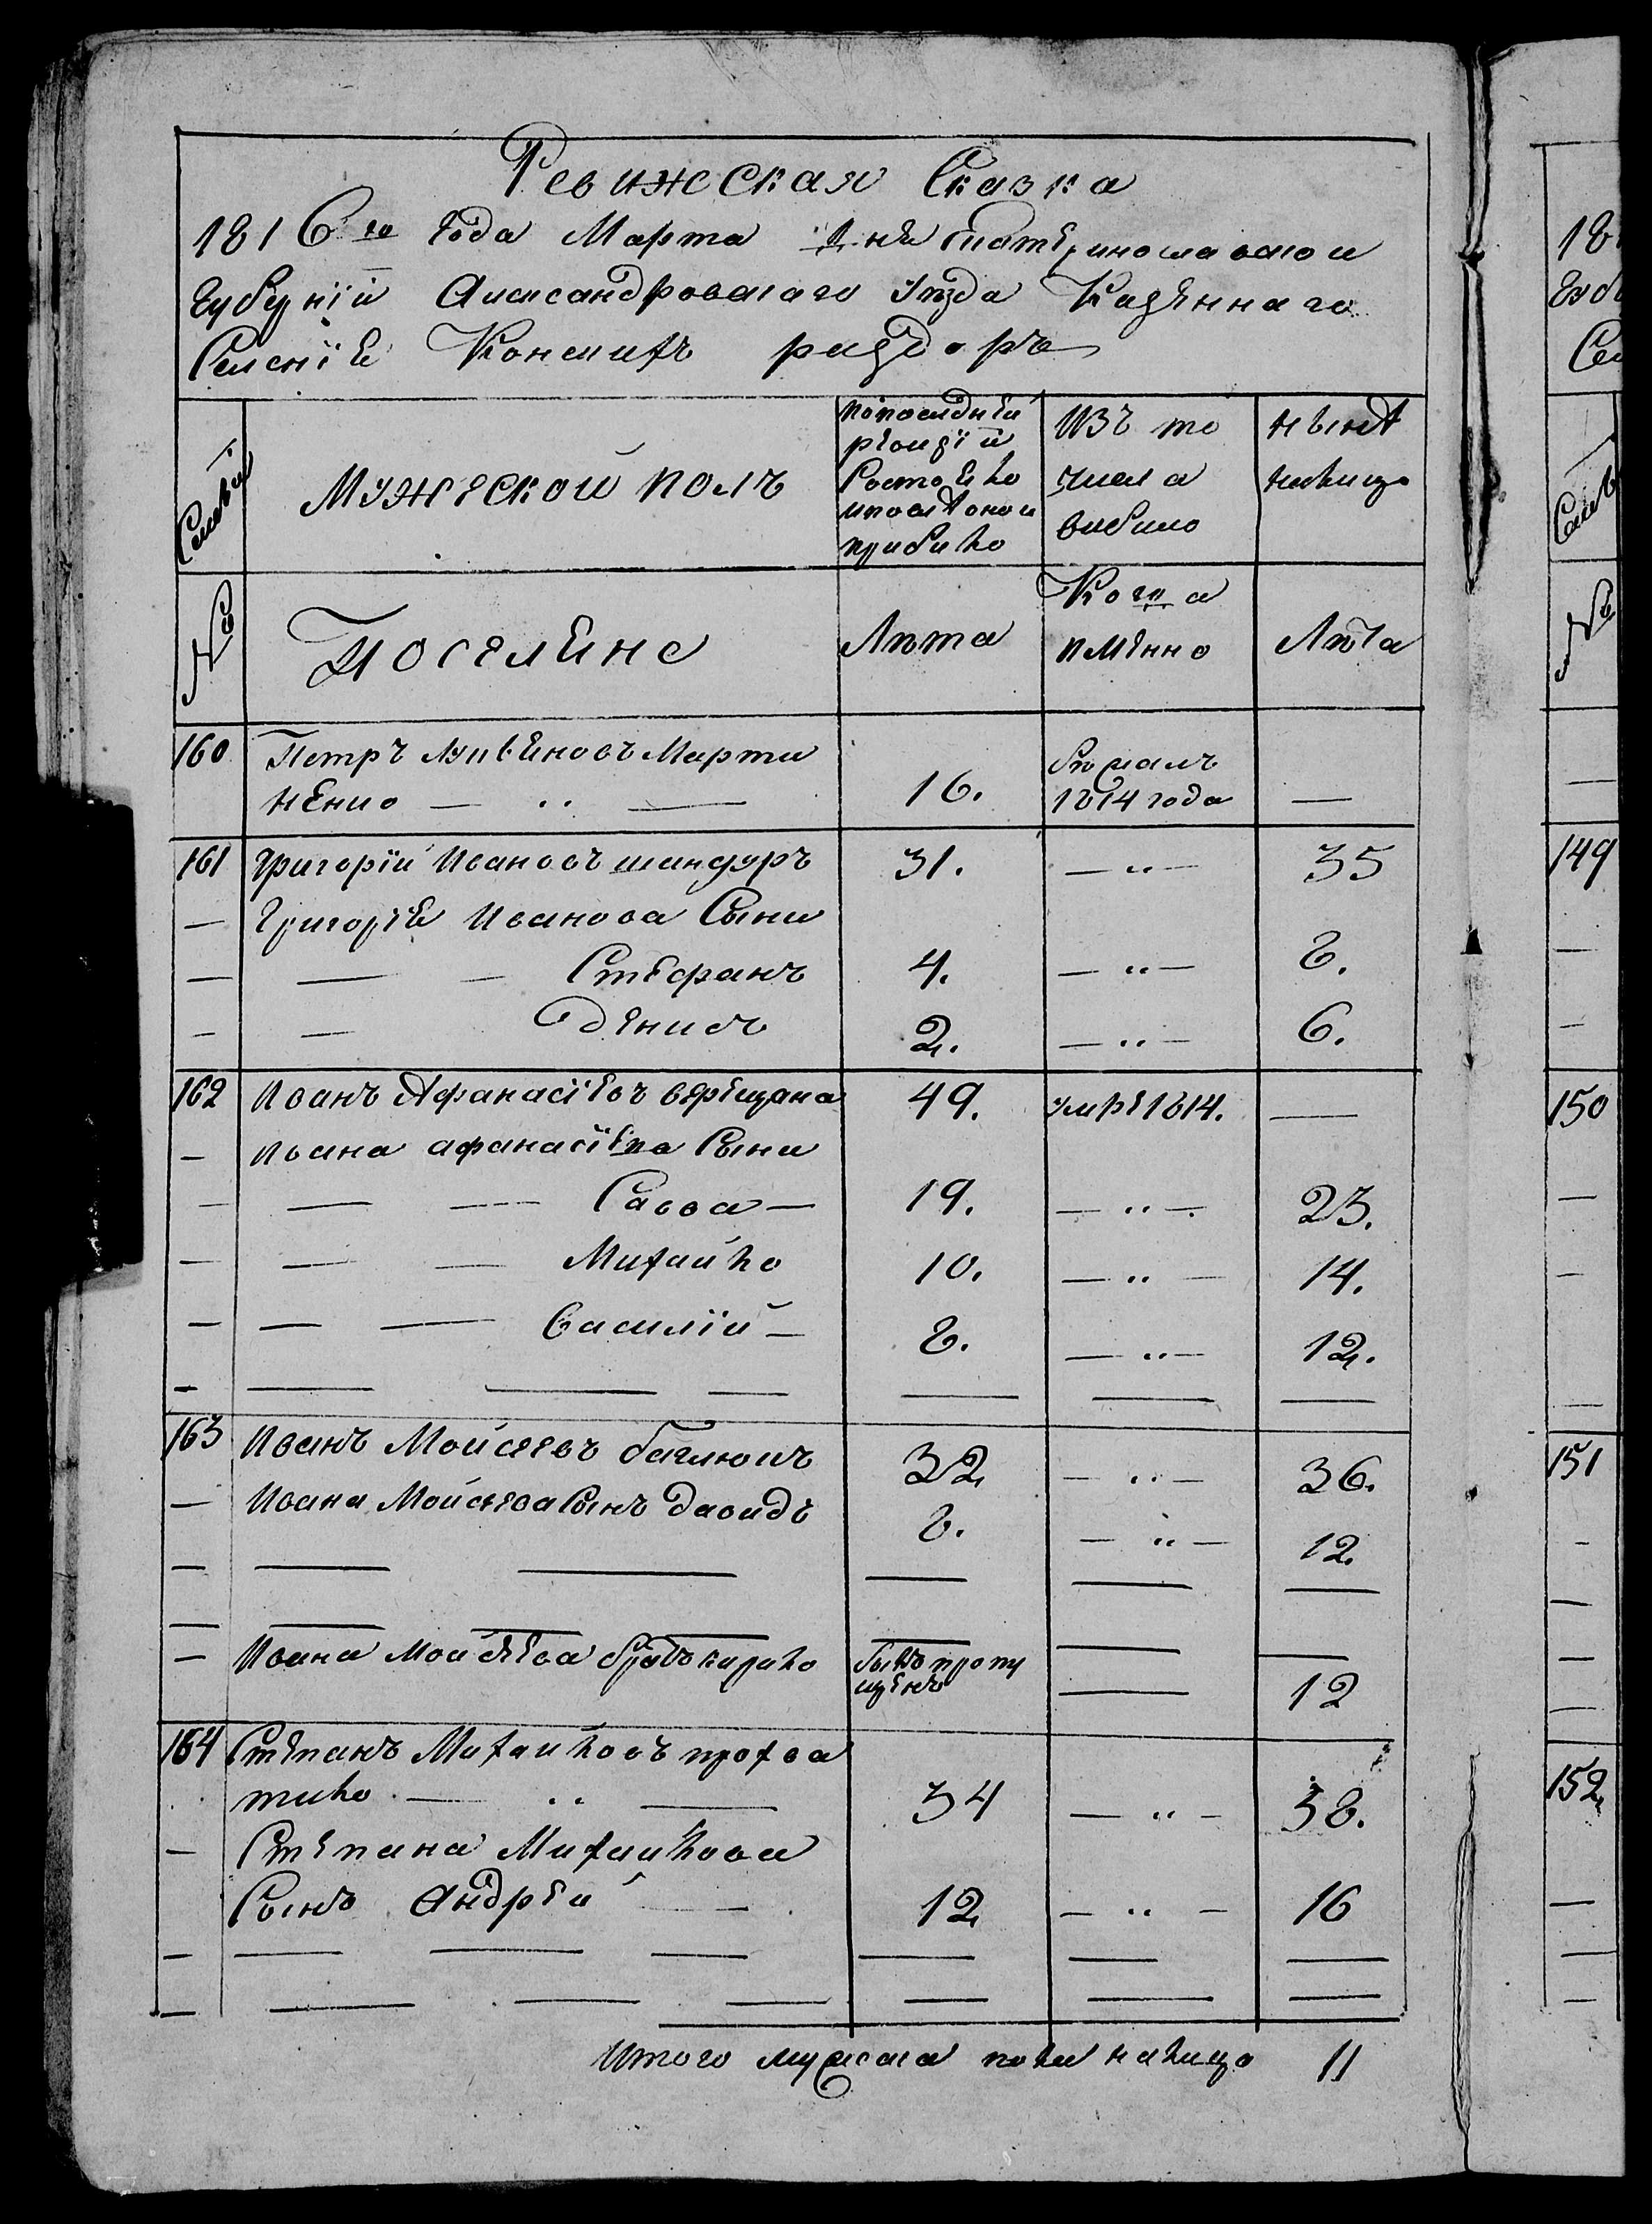 Ревижская Сказка
1816го года Марта 1 дня Екатеринославской
Губернїй Александровскаго уезда Казеннаго
Селенїе Конских раздоръ
Семьи
Мужеской полъ
по последней
ревизїи
состояло
и после оной
прибыло
Изъ то
числа
выбыло
ныне
налицо
№
Поселяне
Лѣта
Когда
имянно
Лѣта
160 Петръ Марты
ненко — ·· — 16. 1814 года —
161 Григорїй Ивановъ шандуръ 31. — ·· — 35
— Григорїе Иванова Сыни
— — — Стефанъ 4. — ·· — 8.
— — Денисъ 2. — ·· — 6.
162 Иванъ Афанасїевъ верещака 49. умре 1814. —
— Ивана афанасїева Сыни
— — — Савва — 19. — ·· — 23.
— — — Михайло 10. — ·· — 14.
— — — Василїй — 8. — ·· — 12.
— — — — — — —
163 Иванъ Мойсеевъ баглюкъ 32 — ·· — 36.
— Ивана Мойсеева Сынъ Давидъ 8. — ·· — 12.
— — — — — —
— — — — — — —
— Ивана Мойсеева братъ кирило былъ пропу
щенъ — 12
164 Степанъ Михайловъ прохва
тило — ·· — 34 — ·· — 38.
— Степана Михайлова
Сынъ Андрей — 12 — ·· — 16
— — — — — — —
— — — — — — —
Итого мужска пола налицо 11
18
Губ
Сел
Семь
№
—
149
—
—
150
—
—
—
151
—
—
—
—
152
—
—
—